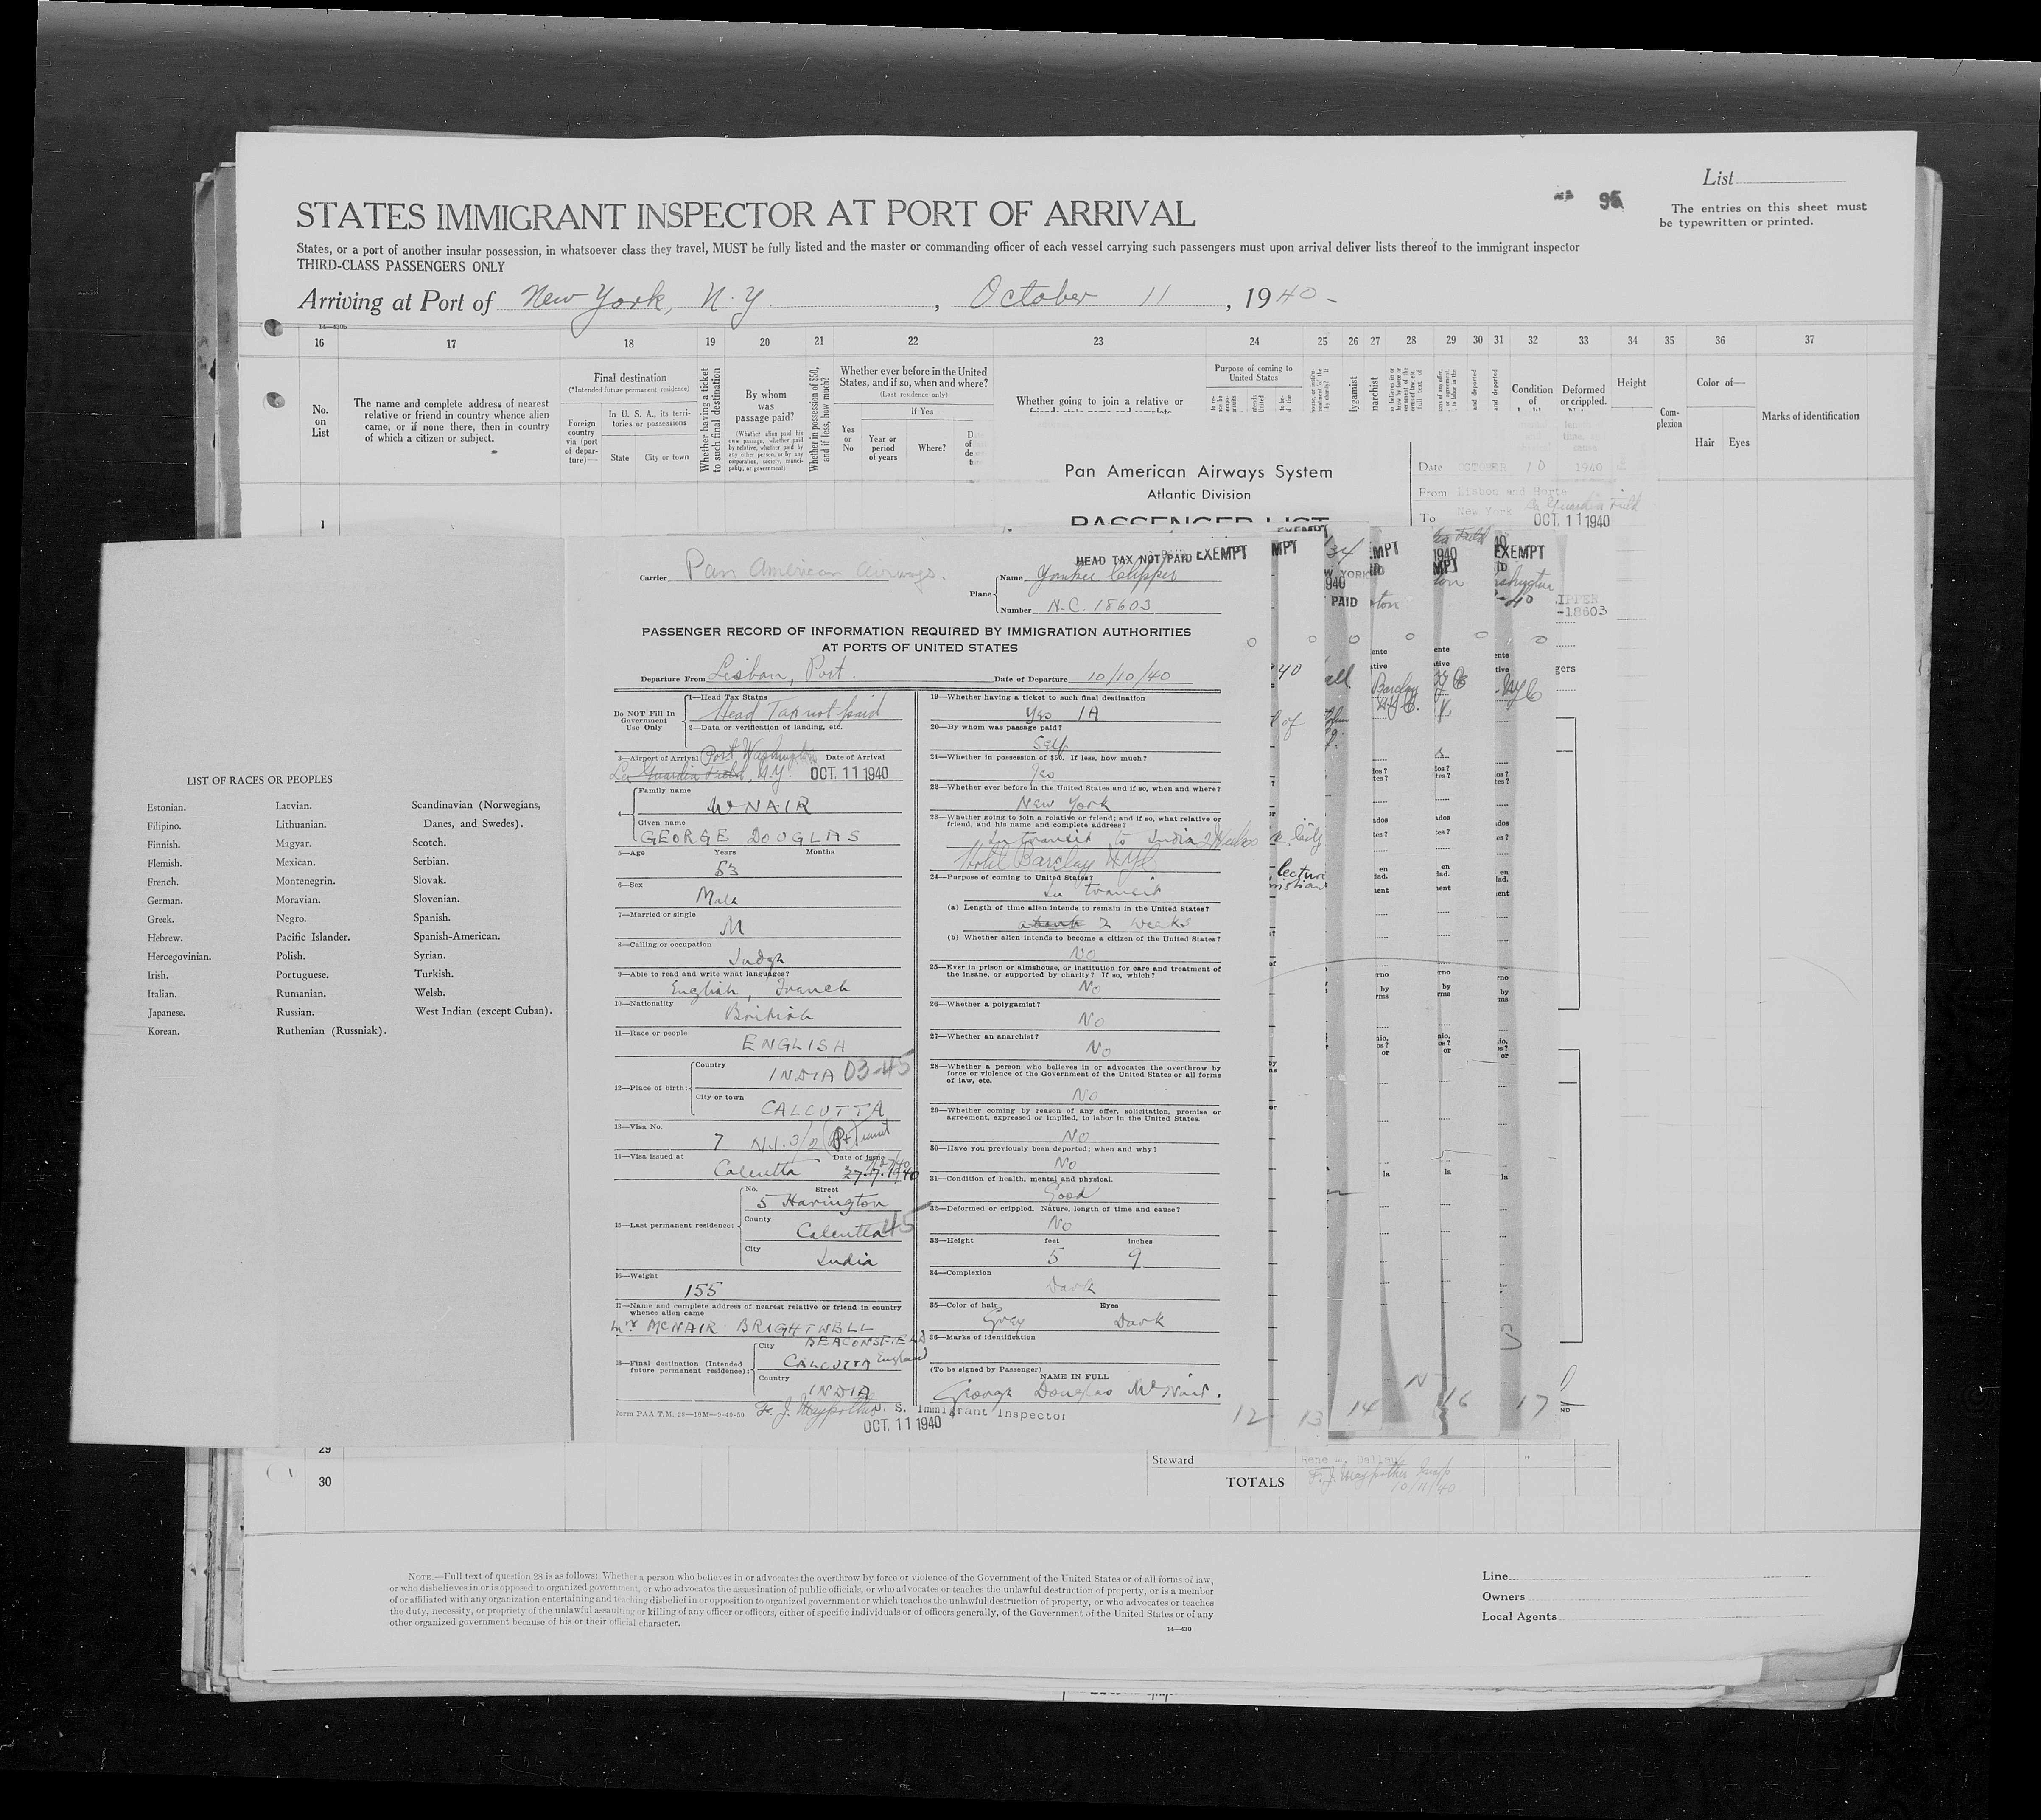 List
95
The entries on this sheet must
be typewritten or printed.
STATES IMMIGRANT INSPECTOR AT PORT OF ARRIVAL
States, or a port of another insular possession, in whatsoever class they travel, MUST be fully listed and the master or commanding officer of each vessel carrying such passengers must upon arrival deliver lists thereof to the immigrant inspector
THIRD-CLASS PASSENGERS ONLY
Arriving at Port of New York, N.Y. , October 11 , 1940-
14-430b
16 17 18 19 20 21 22 23 24 25 26 27 28 29 30 31 32 33 34 35 36 37
No. on List
The name and complete address of nearest
relative or friend in country whence alien
came, or if none there, then in country
of which a citizen or subject.
Final destination
(*Intended future permanent residence)
Foreign
country
via (port
of depar-
ture)—
In U. S. A., its terri-
tories or possessions
State City or town
Whether having a ticket
to such final destination
By whom
was
passage paid?
(Whether alien paid his
own passage, whether paid
by relative, whether paid by
any other person, or by any
corporation, society, munici-
pality, or government)
Whether in possession of $50,
and if less, how much?
Whether ever before in the United
States, and if so, when and where?
(Last residence only)
If Yes—
Yes
or
No
Year or
period
of years
Where?
Whether going to join a relative or
Purpose of coming to
United States
Condition
of
Deformed
or crippled.
Height
Com-
plexion
Color of—
Hair Eyes
Marks of identification
1
Pan American Airways System
Atlantic Division
PASSENGER LIST
Date OCTOBER 10 1940
From Lisbon and Horta
To New York La Guardia Field
OCT. 11 1940
LIST OF RACES OR PEOPLES
Estonian. Latvian. Scandinavian (Norwegians,
Filipino. Lithuanian. Danes, and Swedes).
Finnish. Magyar. Scotch.
Flemish. Mexican. Serbian.
French. Montenegrin. Slovak.
German. Moravian. Slovenian.
Greek. Negro. Spanish.
Hebrew. Pacific Islander. Spanish-American.
Hercegovinian. Polish. Syrian.
Irish. Portuguese. Turkish.
Italian. Rumanian. Welsh.
Japanese. Russian. West Indian (except Cuban).
Korean. Ruthenian (Russniak).
HEAD TAX NOT PAID EXEMPT
Carrier Pan American Airways.
Plane Name Yankee Clipper
Number N.C. 18603
PASSENGER RECORD OF INFORMATION REQUIRED BY IMMIGRATION AUTHORITIES
AT PORTS OF UNITED STATES
Departure From Lisbon, Port. Date of Departure 10/10/40
Do NOT Fill In
Government
Use Only
1—Head Tax Status
Head Tax not paid
2—Data or verification of landing, etc.
3—Airport of Arrival Port Washington Date of Arrival
La Guardia Field, N.Y. OCT. 11 1940
4— Family name
McNAIR
Given name
GEORGE DOUGLAS
5—Age Years Months
53
6—Sex
Male
7—Married or single
M
8—Calling or occupation
Judge
9—Able to read and write what languages?
English, French
10—Nationality
British
11—Race or people
ENGLISH
12—Place of birth: Country
INDIA 03-45
City or town
CALCUTTA
13—Visa No.
7 N.I. 3/2 Transit
14—Visa issued at Date of Issue
Calcutta 27.7.1940
15—Last permanent residence: No. Street
5 Harington
County
Calcutta 45
City
India
16—Weight
155
17—Name and complete address of nearest relative or friend in country
whence alien came
Mrs McNAIR BRIGHTWELL
BEACONSFIELD
England
18—Final destination (Intended
future permanent residence): City
CALCUTTA
Country
INDIA
Form PAA T.M. 28—10M—9-40-50
F. J. Maypother U. S. Immigrant Inspector
OCT. 11 1940
19—Whether having a ticket to such final destination
Yes 1A
20—By whom was passage paid?
Self
21—Whether in possession of $50. If less, how much?
Yes
22—Whether ever before in the United States and if so, when and where?
New York
23—Whether going to join a relative or friend; and if so, what relative or
friend, and his name and complete address?
In transit to India 2 Weeks
Hotel Barclay NYC
24—Purpose of coming to United States?
In transit
(a) Length of time alien intends to remain in the United States?
about 2 weeks
(b) Whether alien intends to become a citizen of the United States?
No
25—Ever in prison or almshouse, or institution for care and treatment of
the insane, or supported by charity? If so, which?
No
26—Whether a polygamist?
No
27—Whether an anarchist?
No
28—Whether a person who believes in or advocates the overthrow by
force or violence of the Government of the United States or all forms
of law, etc.
No
29—Whether coming by reason of any offer, solicitation, promise or
agreement, expressed or implied, to labor in the United States.
No
30—Have you previously been deported; when and why?
No
31—Condition of health, mental and physical.
Good
32—Deformed or crippled. Nature, length of time and cause?
No
33—Height feet inches
5 9
34—Complexion
Dark
35—Color of hair Eyes
Grey Dark
36—Marks of identification
(To be signed by Passenger)
NAME IN FULL
George Douglas McNair.
EXEMPT
PAID
-18603
12 13 14 16 17
29
30
Steward
TOTALS
F. J. Maypother Insp
10/11/40
NOTE.—Full text of question 28 is as follows: Whether a person who believes in or advocates the overthrow by force or violence of the Government of the United States or of all forms of law,
or who disbelieves in or is opposed to organized government, or who advocates the assassination of public officials, or who advocates or teaches the unlawful destruction of property, or is a member
of or affiliated with any organization entertaining and teaching disbelief in or opposition to organized government or which teaches the unlawful destruction of property, or who advocates or teaches
the duty, necessity, or propriety of the unlawful assaulting or killing of any officer or officers, either of specific individuals or of officers generally, of the Government of the United States or of any
other organized government because of his or their official character.
14—430
Line
Owners
Local Agents